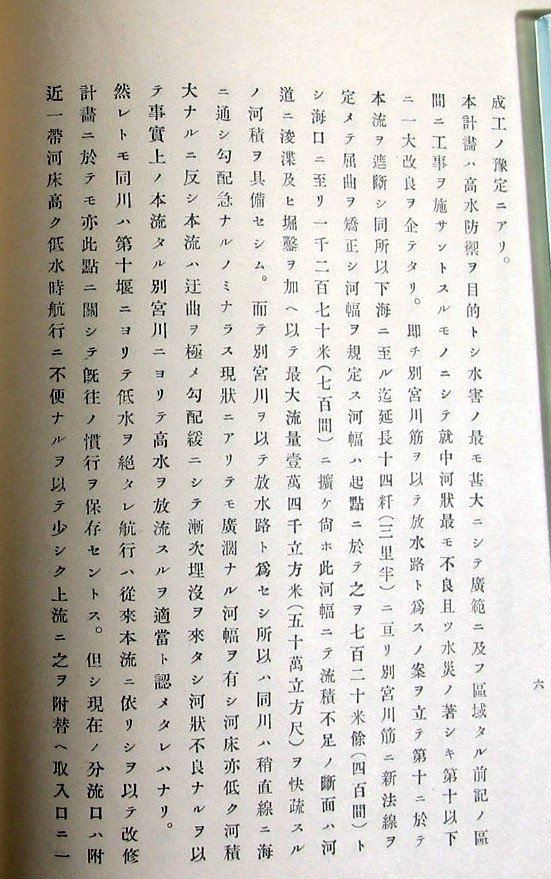 成工ノ豫定ニアリ。
本計畫ハ高水防禦ヲ目的トシ水害ノ最モ甚大ニシテ廣範ニ及フ區域タル前記ノ區
間ニ工事ヲ施サントスルモノニシテ就中河狀最モ不良且ツ水災ノ著シキ第十以下
ニ一大改良ヲ企テタリ。卽チ別宮川筋ヲ以テ放水路ト爲スノ案ヲ立テ第十ニ於テ
本流ヲ遮斷シ同所以下海ニ至ル迄延長十四粁(三里半)ニ亘リ別宮川筋ニ新法線ヲ
定メテ屈曲ヲ矯正シ河幅ヲ規定ス河幅ハ起點ニ於テ之ヲ七百二十米餘(四百間)ト
シ海口ニ至リ一千二百七十米(七百間)ニ擴ケ尙ホ此河幅ニテ流積不足ノ斷面ハ河
道ニ浚渫及ヒ堀鑿ヲ加ヘ以テ最大流量壹萬四千立方米(五十萬立方尺)ヲ快疏スル
ノ河積ヲ具備セシム。而テ別宮川ヲ以テ放水路ト爲セシ所以ハ同川ハ稍直線ニ海
ニ通シ勾配急ナルノミナラス現狀ニアリテモ廣濶ナル河幅ヲ有シ河床亦低ク河積
大ナルニ反シ本流ハ迂曲ヲ極メ勾配緩ニシテ漸次埋沒ヲ來タシ河狀不良ナルヲ以
テ事實上ノ本流タル別宮川ニヨリテ高水ヲ放流スルヲ適當ト認メタレハナリ。
然レトモ同川ハ第十堰ニヨリテ低水ヲ絶タレ航行ハ從來本流ニ依リシヲ以テ改修
計畫ニ於テモ亦此點ニ關シテ旣往ノ慣行ヲ保存セントス。但シ現在ノ分流口ハ附
近一帶河床高ク低水時航行ニ不便ナルヲ以テ少シク上流ニ之ヲ附替ヘ取入口ニ一
六